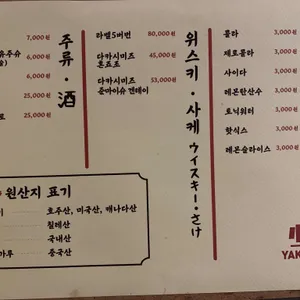 7,000원
6,000원
6,000원
25,000원
25,000원
주류・酒
라벨5버번 80,000원
다카시미즈 45,000원
혼죠조
다카시미즈 53,000원
준마이슈 깬테이
위스키・사케 ウィスキー・さけ
콜라 3,000원
제로콜라 3,000원
사이다 3,000원
레몬탄산수 3,000원
토닉워터 3,000원
핫식스 3,000원
레몬슬라이스 3,000원
원산지 표기
호주산, 미국산, 캐나다산
칠레산
국내산
중국산
YAK